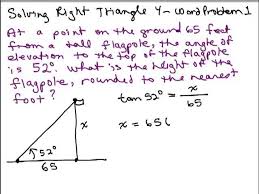 Solving Right Triangle Y - Word Problem 1
At a point on the ground 65 feet
from a tall flagpole, the angle of
elevation to the top of the flagpole
is 52°. What is the height of the
flagpole, rounded to the nearest
foot?
tan 52° = x/65
x = 65(
x
52°
65